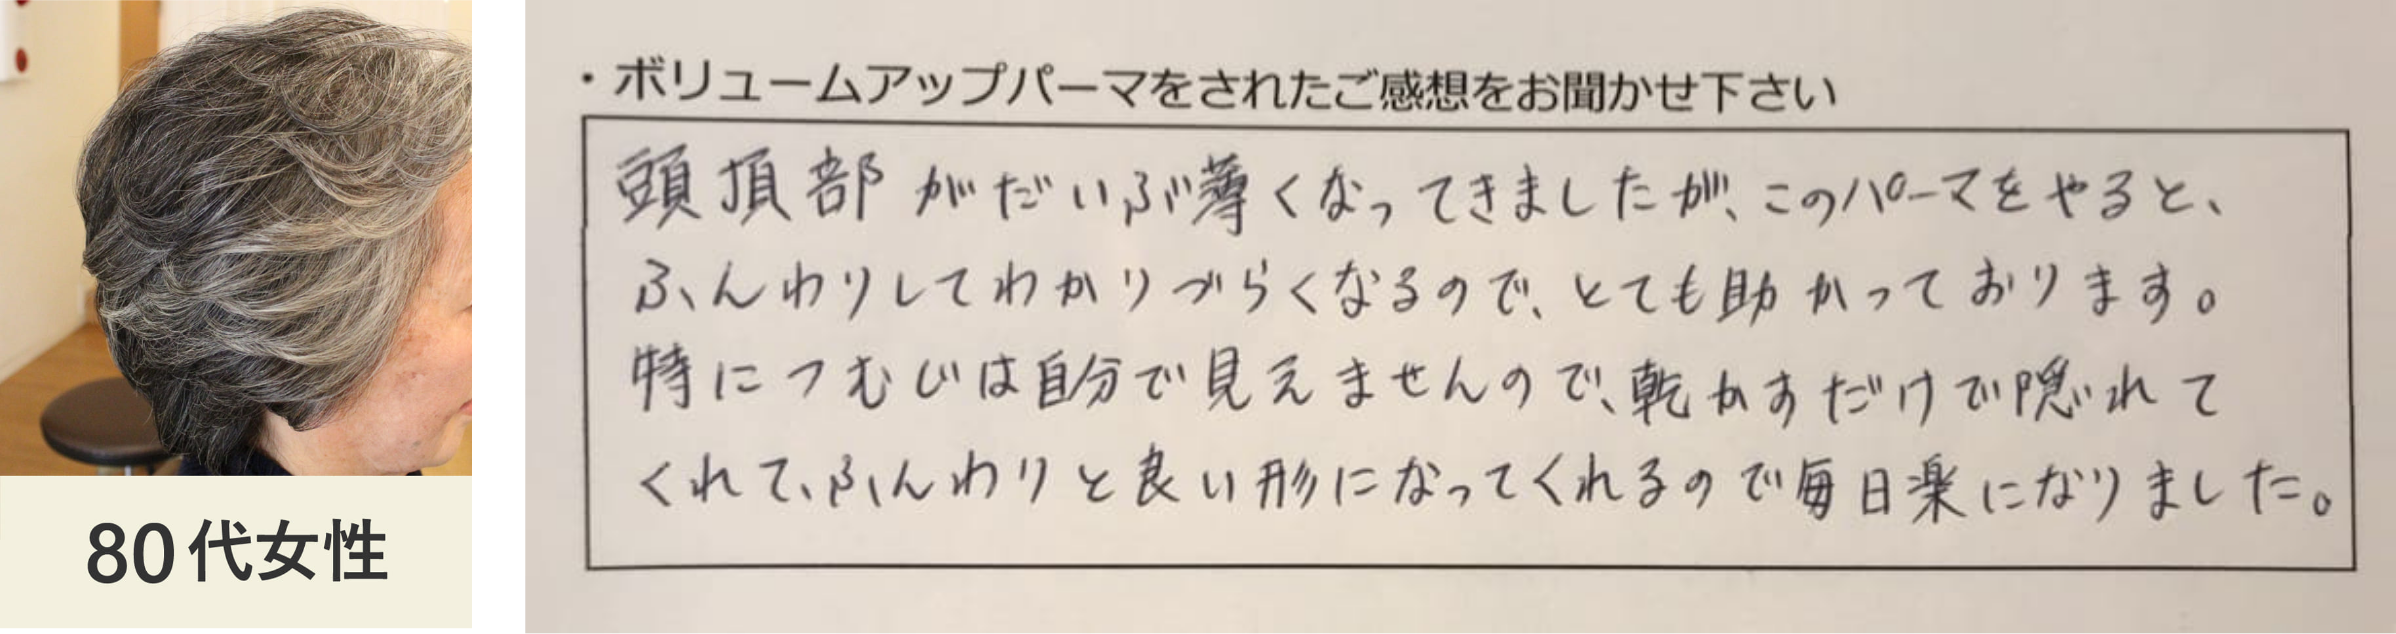 80代女性
・ボリュームアップパーマをされたご感想をお聞かせ下さい
頭頂部がだいぶ薄くなってきましたが、このパーマをやると、
ふんわりしてわかりづらくなるので、とても助かっております。
特につむじは自分で見えませんので、乾かすだけで隠れて
くれて、ふんわりと良い形になってくれるので毎日楽になりました。